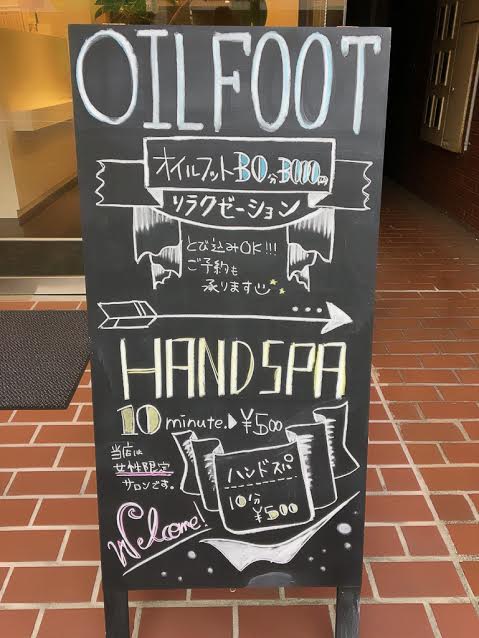 OILFOOT
オイルフット30分3000円
リラクゼーション
とび込みOK!!!
ご予約も
承ります
HANDSPA
10 minute. ¥500
当店は
女性限定
サロンです。
ハンドスパ
10分
¥500
Welcome!